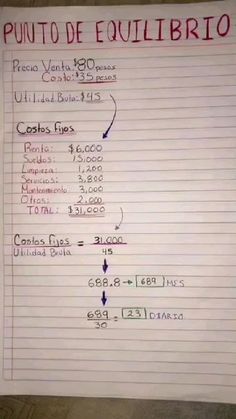 PUNTO DE EQUILIBRIO
Precio Venta: $80 pesos
Costo: $35 pesos
Utilidad Bruta: $45
Costos Fijos
Renta: $6,000
Sueldos: 15,000
Limpieza: 1,200
Servicios: 3,800
Mantenimiento 3,000
Otros: 2,000
TOTAL: $31,000
Costos Fijos = 31,000
Utilidad Bruta 45
688.8 → 689 MES
689 = 23 DIARIO
30